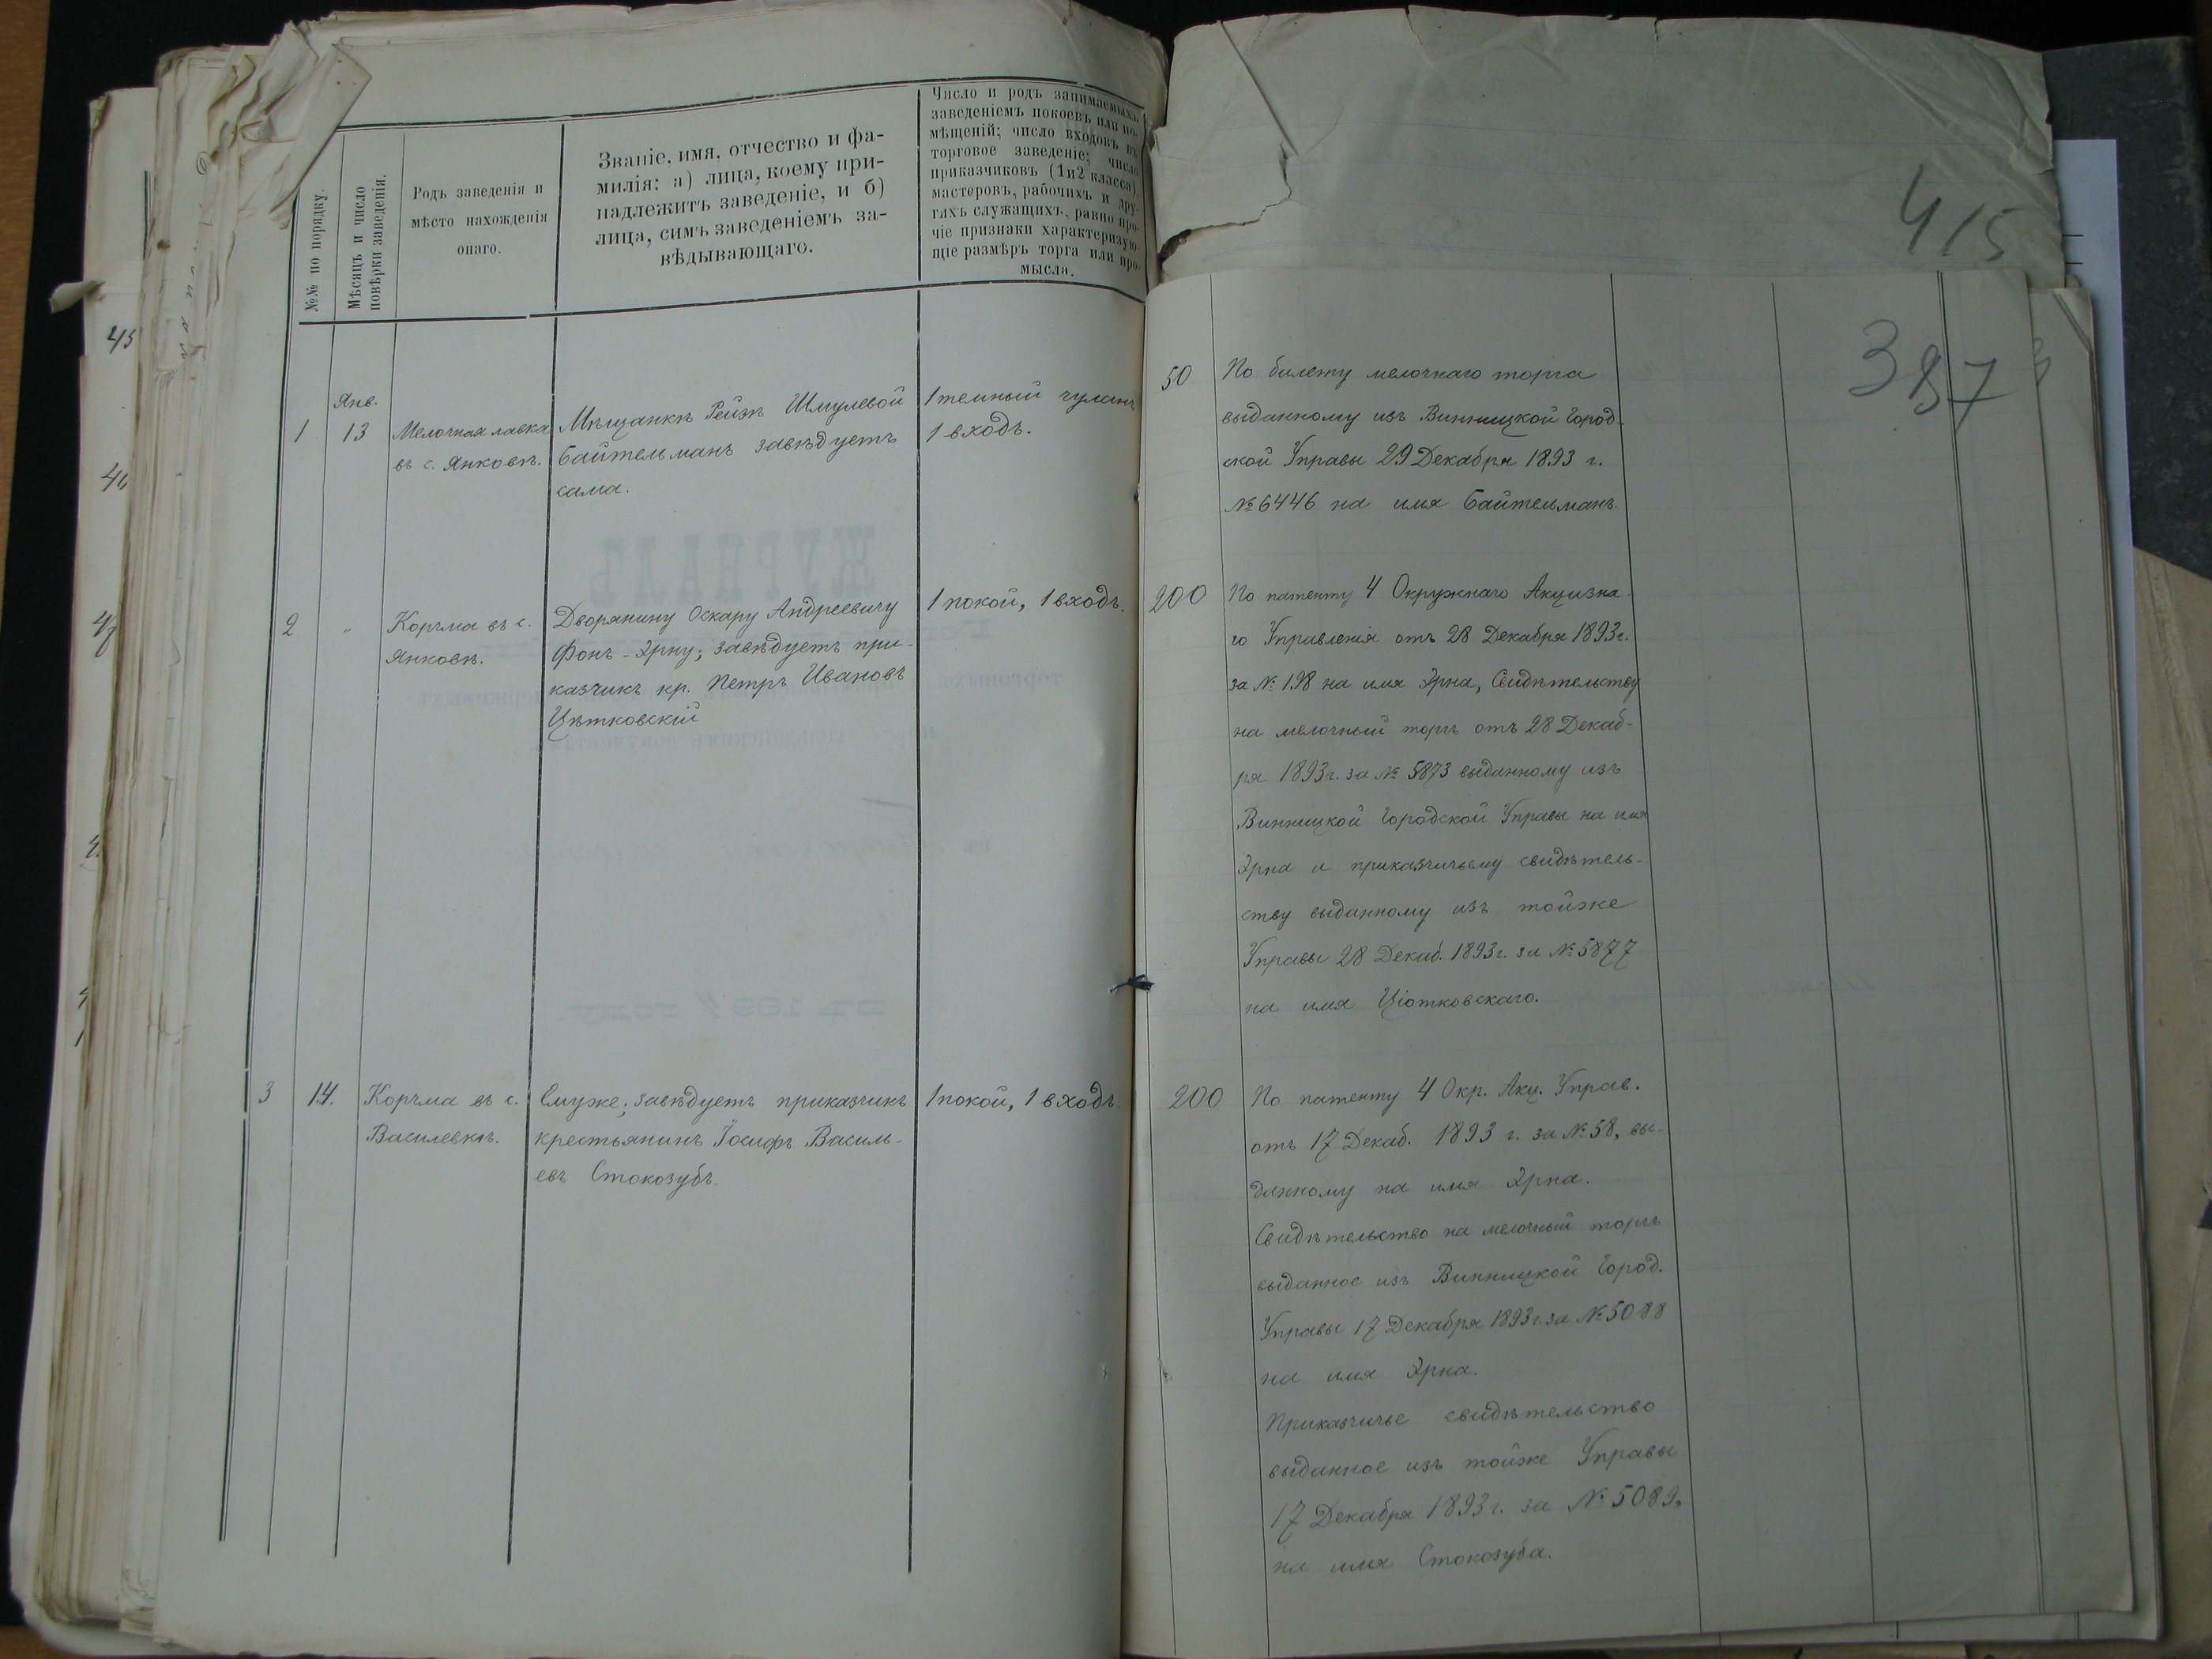 №№ по порядку.
Мѣсяцъ и число
повѣрки заведенія.
Родъ заведенія и
мѣсто нахожденія
онаго.
Званіе, имя, отчество и фа-
милія: а) лица, коему при-
надлежитъ заведеніе, и б)
лица, симъ заведеніемъ за-
вѣдывающаго.
Число и родъ занимаемыхъ
заведеніемъ покоевъ или по-
мѣщеній; число входовъ въ
торговое заведеніе; число
приказчиковъ (1 и 2 класса),
мастеровъ, рабочихъ и дру-
гихъ служащихъ, равно про-
чіе признаки характеризую-
щіе размѣръ торга или про-
мысла.
415
387
1
Янв.
13
Мелочная лавка
въ с. Янковѣ.
Мѣщанкѣ Рейзѣ Шмулевой
Байтельманъ завѣдуетъ
сама.
1 темный чуланъ
1 входъ.
50
По билету мелочнаго торга
выданному изъ Винницкой Город-
ской Управы 29 Декабря 1893 г.
№ 6446 на имя Байтельманъ.
2
"
Корчма въ с.
Янковѣ.
Дворянину Оскару Андреевичу
фонъ-Эрну; завѣдуетъ при-
казчикъ кр. Петръ Ивановъ
Цѣтковскій
1 покой, 1 входъ.
200
По патенту 4 Окружнаго Акцизна-
го Управленія отъ 28 Декабря 1893 г.
за № 198 на имя Эрна, Свидѣтельству
на мелочный торгъ отъ 28 Декаб-
ря 1893 г. за № 5873 выданному изъ
Винницкой Городской Управы на имя
Эрна и приказчичьему свидѣтель-
ству выданному изъ тойже
Управы 28 Декаб. 1893 г. за № 5877
на имя Цютковскаго.
3
14.
Корчма въ с.
Василевкѣ.
Ему же; завѣдуетъ приказчикъ
крестьянинъ Іосифъ Василь-
евъ Стокозубъ.
1 покой, 1 входъ.
200
По патенту 4 Окр. Акц. Управ.
отъ 17 Декаб. 1893 г. за № 58, вы-
данному на имя Эрна.
Свидѣтельство на мелочный торгъ
выданное изъ Винницкой Город.
Управы 17 Декабря 1893 г. за № 5088
на имя Эрна.
Приказчичье свидѣтельство
выданное изъ тойже Управы
17 Декабря 1893 г. за № 5089,
на имя Стокозуба.